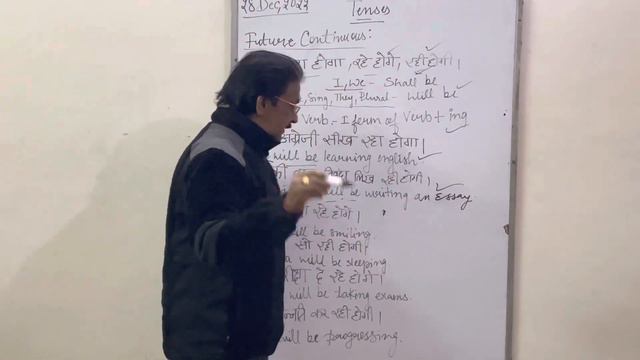 28 Dec, 2022 Tenses
Future Continuous:
होगा, रहे होंगे, रही होगी।
I, We - Shall be
Sing, They, Plural - Will be
Verb - I form of Verb + ing
अंग्रेजी सीख रहा होगा।
will be learning english
लिख रही होगी।
will be writing an Essay
रहे होंगे।
will be smiling
सो रही होगी।
will be sleeping
दे रहे होंगे।
will be taking exams.
कर रही होगी।
will be progressing.